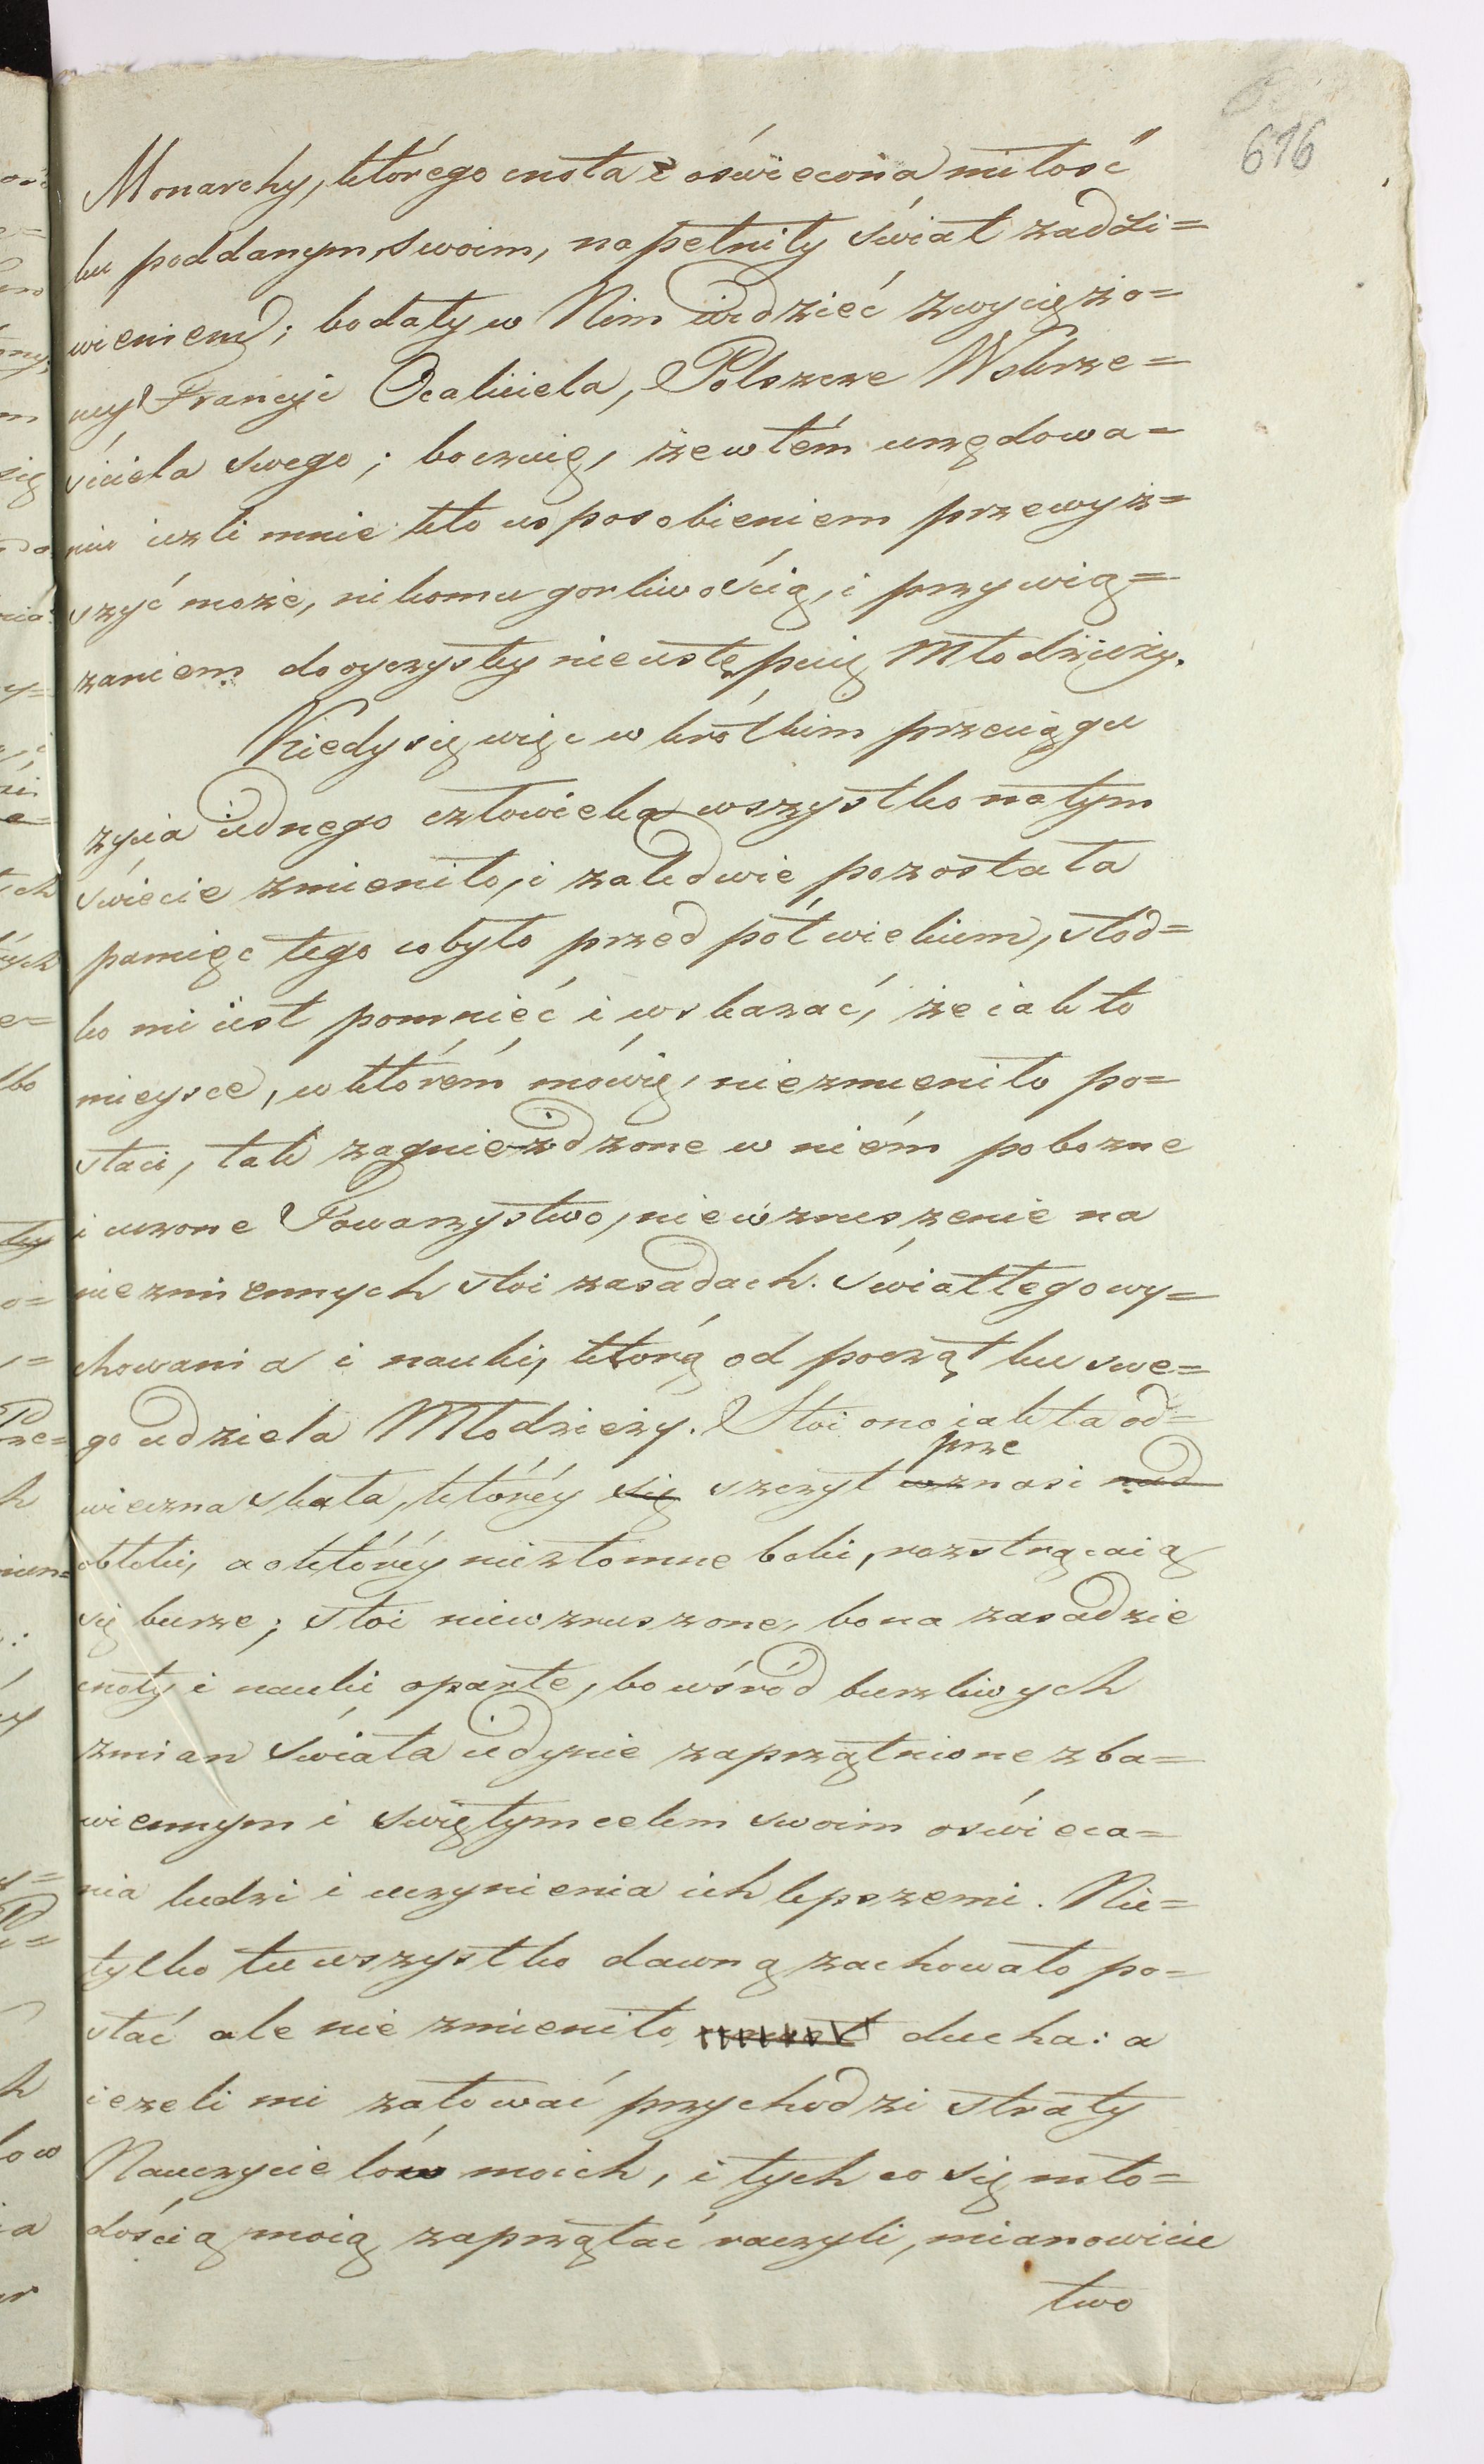 616
Monarchy, którego cnota i oświecona miłość
ku poddanym swoim, napełniły świat zadzi=
wieniem; bo dały w Nim widzieć zwyciężo=
ney Francyi Ocaliciela, Polszcze Wskrze=
siciela swego; bo czuię, że w tém urzędowa=
niu ieżli mnie kto usposobieniem przewyż=
szyć może, nikomu gorliwością, i przywią=
zaniem do oyczystey nieustępuię Młodzieży.
Kiedy się więc w krótkim przeciągu
zycia iednego człowieka wszystko na tym
świecie zmieniło, i zaledwie pozostała
pamięc tego co było przed pół wiekiem, słod=
ko mi iest pomnieć i wskazać, że iak to
mieysce, w którém mówię, niezmieniło po=
staci, tak zagnieżdzone w niém pobozne
i uczone Towarzystwo, niewzruszenie na
niezmiennych stoi zasadach. światłego wy=
chowania i nauki, którą od początku swe=
go udziela Młodzieży. Stoi ono iak ta od=
prze
wieczna skała, któréy się szczyt wznosi nad
obłoki, a o któréy niezłomne boki, roztrącaią
się burze; stoi niewzruszone, bo na zasadzie
cnoty i nauki oparte, bo wśród burzliwych
zmian świata iedynie zaprzątnione zba=
wiennym i swiętym celem swoim oświeca=
nia ludzi i uczynienia ich lepszemi. Nie=
tylko tu wszystko dawną zachowało po=
stać ale nie zmieniło ducha: a
ieżeli mi żałować przychodzi straty
Nauczycielów moich, i tych co się mło=
dością moią zaprzątać raczyli, mianowicie
two